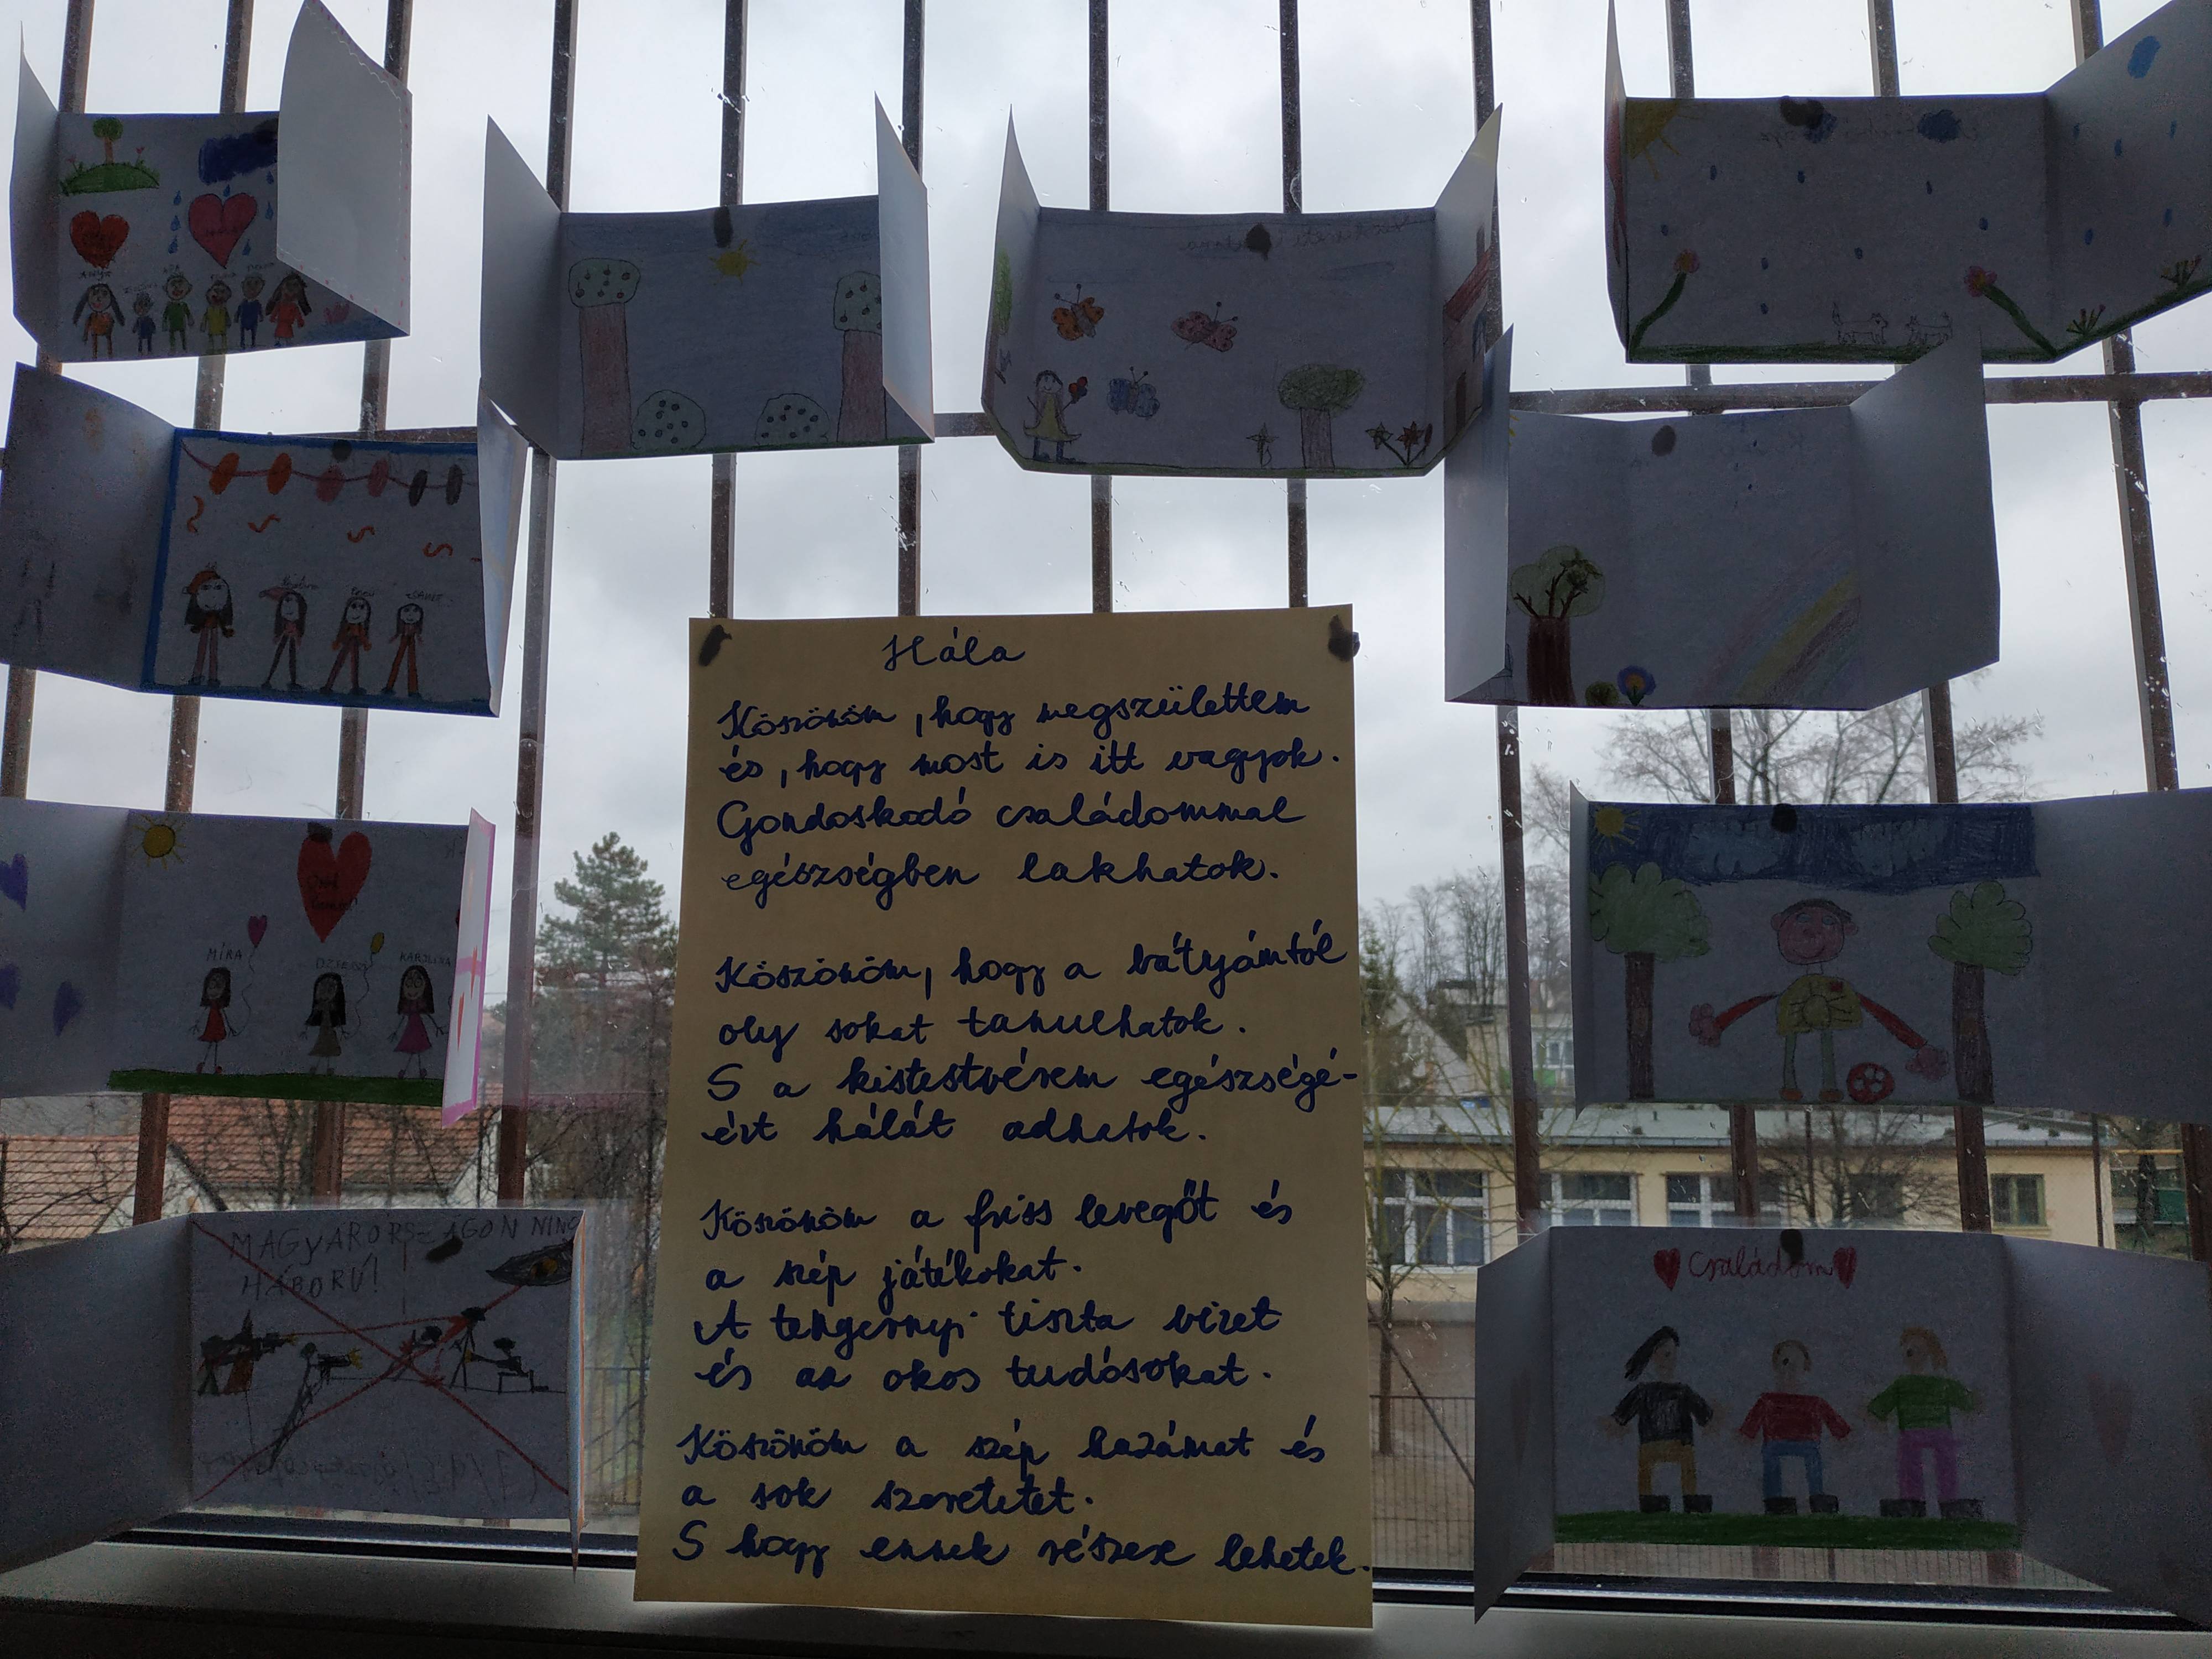 Hála
Köszönöm, hogy megszülettem
és, hogy most is itt vagyok.
Gondoskodó családommal
egészségben lakhatok.
Köszönöm, hogy a bátyámtól
oly sokat tanulhatok.
S a kistestvérem egészségé-
ért hálát adhatok.
Köszönöm a friss levegőt és
a szép játékokat.
A tengernyi tiszta vizet
és az okos tudósokat.
Köszönöm a szép hazámat és
a sok szeretetet.
S hogy ennek részese lehetek.
ANYA
MÍRA
KAROLINA
MAGYARORSZÁGON NINC
HÁBORÚ!
Családom